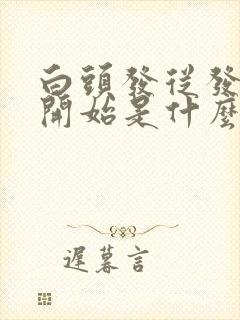 白頭發從發
開始是什麼
遲暮言